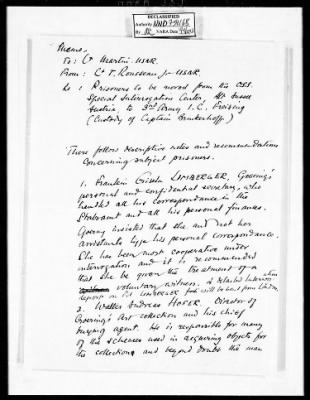 DECLASSIFIED
Authority NND 775058
By NARA Date
Memo,
To: Lt Martin USAR.
From: Lt T. Rousseau Jr USNR.
Re: Prisoners to be moved from the OSS
Special Interrogation Center, Alt Aussee
Austria to 3rd Army I.C., Freising
(Custody of Captain
There follows descriptive notes and recommendations
concerning subject prisoners.
1. Fraulein Gisela LIMBERGER, Goering's
personal and confidential secretary, who
handled all his correspondence in the
Stabsamt and all his personal finances.
Goering insisted that she and not her
assistants type his personal correspondence.
She has been most cooperative under
interrogation and it is recommended
that she be given the treatment of a
voluntary witness. A detailed Interim
report on Miss LIMBERGER Gisela will be sent from London.
2. Walter Andreas HOFER. Director of
Goering's Art collection and his chief
buying agent. He is responsible for many
of the schemes used in acquiring objects for
the collection, and beyond doubt the man